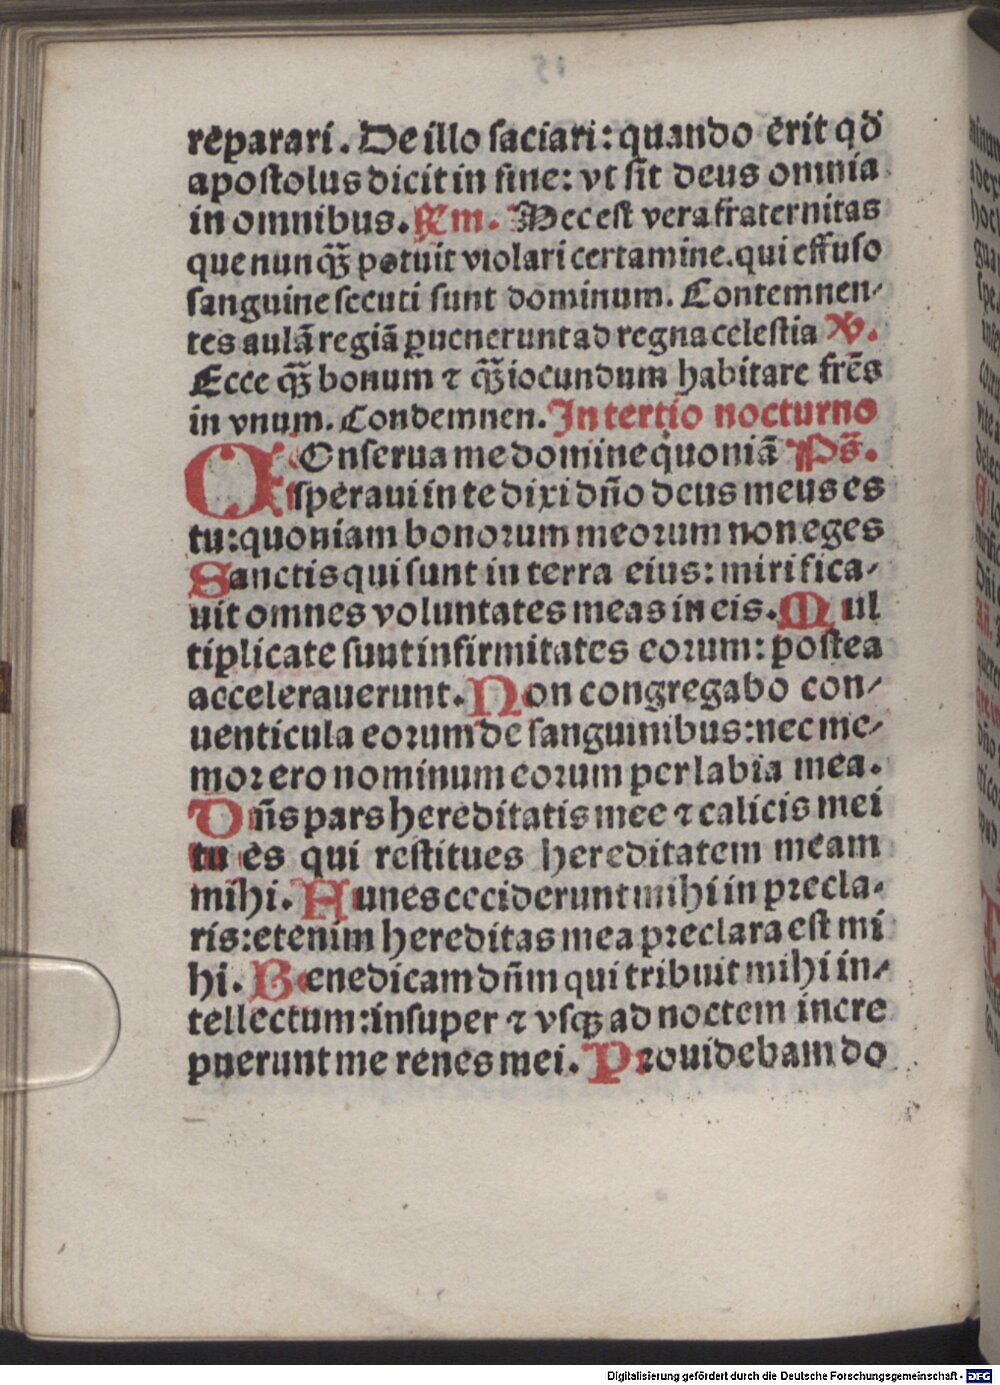 reparari. De illo saciari: quando erit qď
apostolus dicit in fine: vt sit deus omnia
in omnibus. Rm. Hec est vera fraternitas
que nunqꝫ potuit violari certamine. qui effuso
sanguine secuti sunt dominum. Contemnen-
tes aulã regiã ꝑuenerunt ad regna celestia V.
Ecce qꝫ bonum ⁊ qꝫ iocundum habitare frẽs
in vnum. Condemnen. In tertio nocturno
COnserua me domine quoniã Ps̃.
speraui in te dixi dño deus meus es
tu: quoniam bonorum meorum non eges
Sanctis qui sunt in terra eius: mirifica-
uit omnes voluntates meas in eis. Mul
tiplicate sunt infirmitates eorum: postea
accelerauerunt. Non congregabo con-
uenticula eorum de sanguinibus: nec me-
mor ero nominum eorum per labia mea.
Dñs pars hereditatis mee ⁊ calicis mei
tu es qui restitues hereditatem meam
mihi. Funes ceciderunt mihi in precla-
ris: etenim hereditas mea preclara est mi
hi. Benedicam dñm qui tribuit mihi in-
tellectum: insuper ⁊ vsqꝫ ad noctem incre
puerunt me renes mei. Prouidebam do
Digitalisierung gefördert durch die Deutsche Forschungsgemeinschaft - DFG